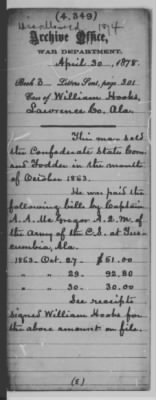 (4,349)
1874
Archive Office,
WAR DEPARTMENT,
April 30, 1878.
Book 3 Letters Sent, page 301
Case of William Hooks,
Lawrence Co. Ala.
This man sold
the Confederate State Corn
and Fodder in the month
of October 1863.
He was paid the
following bill by Captain
A. A. McGregor A. Q. M. of
the Army of the C.S. at Tus-
cumbia, Ala.
1863. Oct. 27. - $51.00
" " 29. - 92.80
" " 30. - 30.00
See receipts
signed William Hooks for
the above amount on file.
(5)